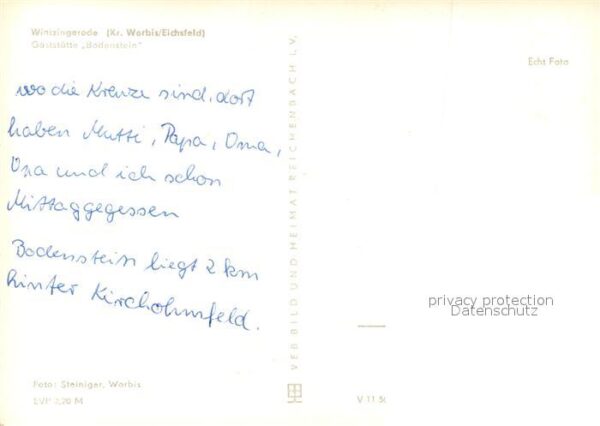 Wintzingerode (Kr. Worbis/Eichsfeld)
Gaststätte „Bodenstein"
Echt Foto
wo die Kreuze sind, dort
haben Mutti, Papa, Oma,
Opa und ich schon
Mittaggegessen
Bodenstein liegt 2 km
hinter Kirchohmfeld.
VEB BILD UND HEIMAT REICHENBACH I.V.
privacy protection
Datenschutz
Foto: Steiniger, Worbis
EVP 0,20 M
V 11 50